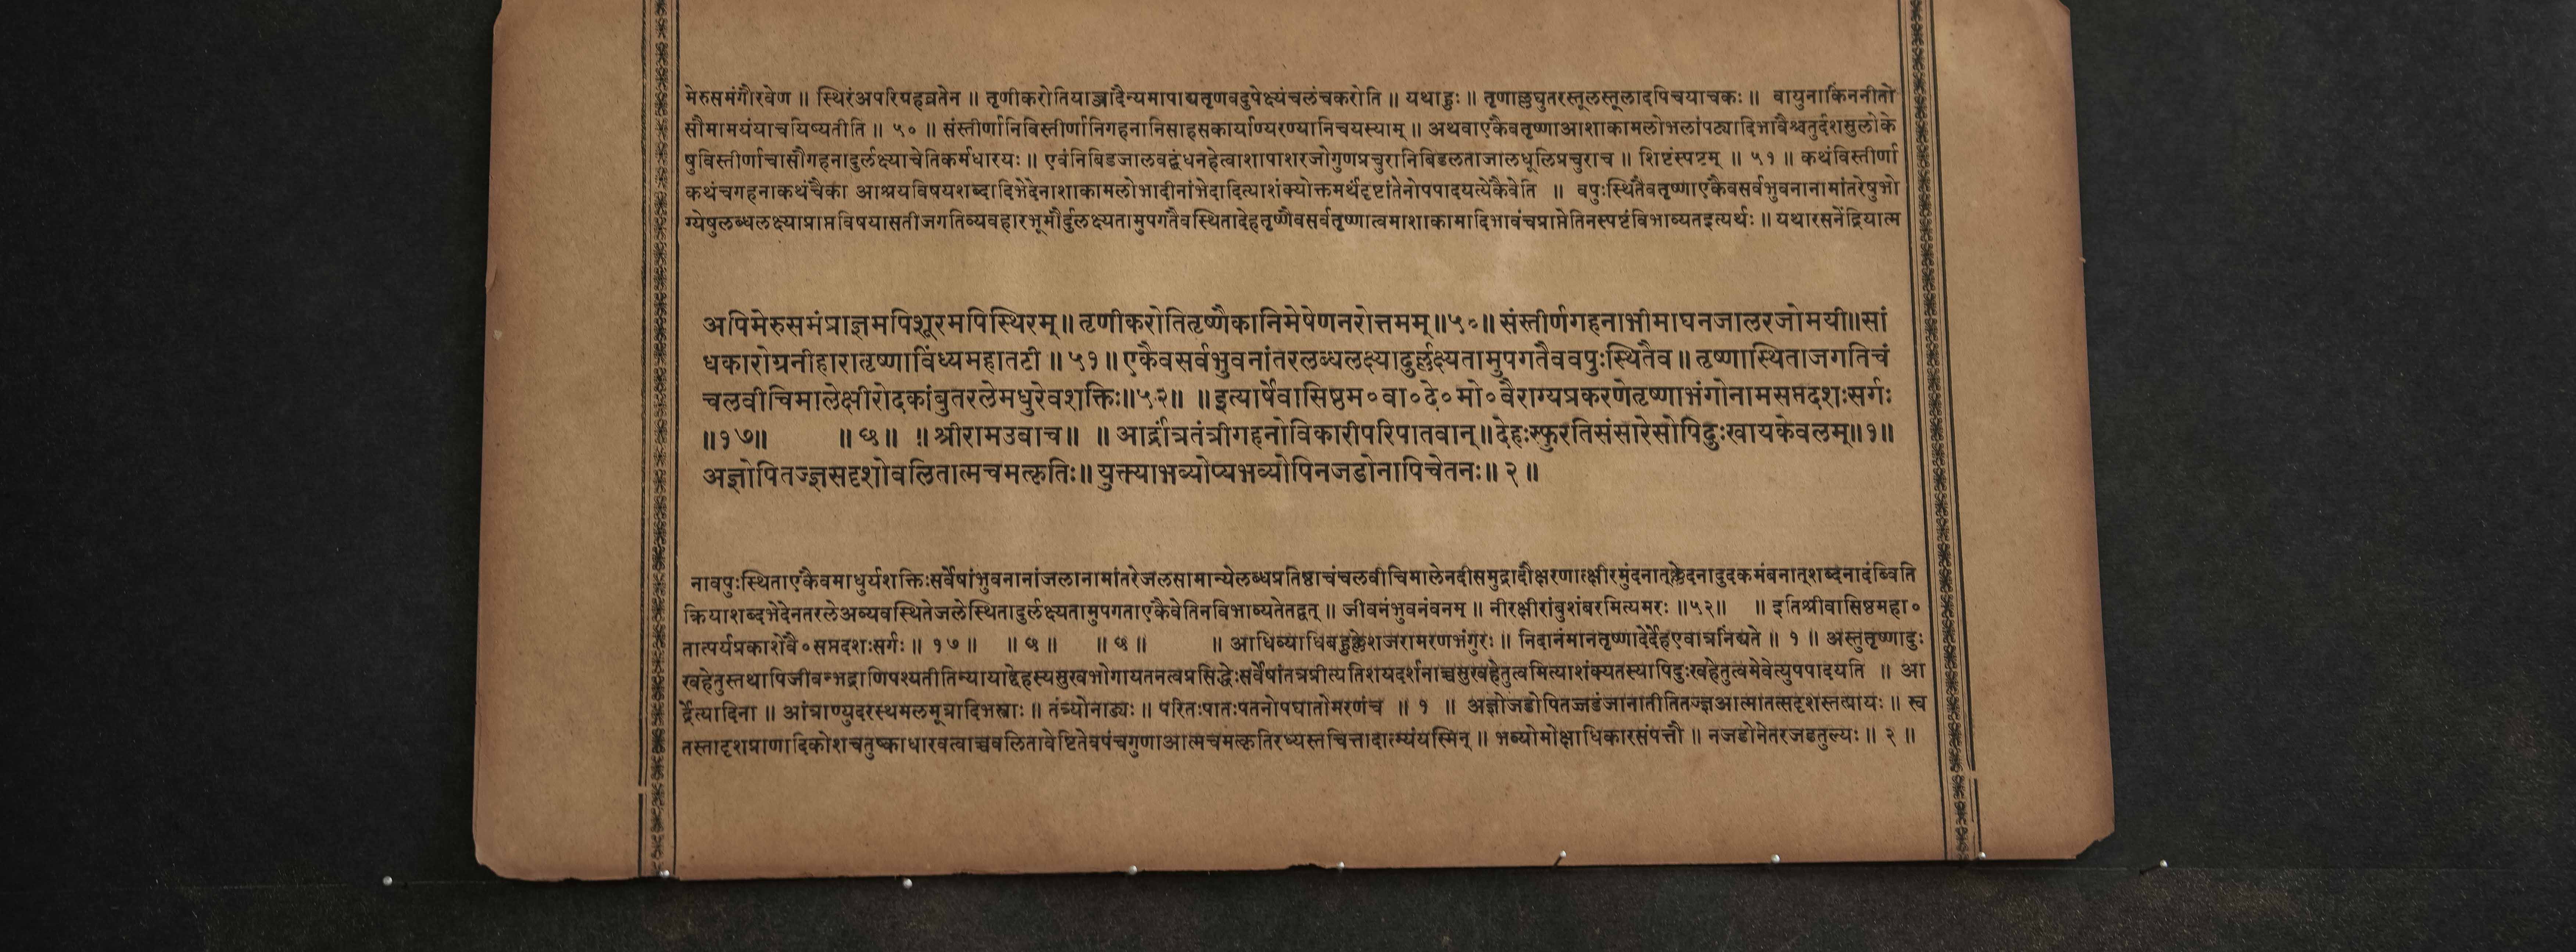 मेरुसमंगौरवेण ॥ स्थिरंअपरिग्रहव्रतेन ॥ तृणीकरोतियाञ्चादैन्यमापाद्यतृणवदुपेक्ष्यंचलंचकरोति ॥ यथाहुः ॥ तृणाल्लघुतरस्तूलस्तूलादपिचयाचकः ॥ वायुनाकिंननीतो
सौमामयंयाचयिष्यतीति ॥ ५० ॥ संस्तीर्णानिविस्तीर्णानिगहनानिसाहसकार्याण्यरण्यानिचयस्याम् ॥ अथवाएकैवतृष्णाआशाकामलोभलांपट्यादिभावैश्चतुर्दशसुलोके
षुविस्तीर्णाचासौगहनादुर्लक्ष्याचेतिकर्मधारयः ॥ एवंनिबिडजालवद्बंधनहेत्वाशापाशरजोगुणप्रचुरानिबिडलताजालधूलिप्रचुराच ॥ शिष्टंस्पष्टम् ॥ ५१ ॥ कथंविस्तीर्णा
कथंचगहनाकथंचैका आश्रयविषयशब्दादिभेदेनाशाकामलोभादीनांभेदादित्याशंक्योक्तमर्थंदृष्टांतेनोपपादयत्येकैवेति ॥ वपुःस्थितैवतृष्णाएकैवसर्वभुवनानामांतरेषुभो
ग्येषुलब्धलक्ष्याप्राप्तविषयासतीजगतिव्यवहारभूमौर्दुलक्ष्यतामुपगतैवस्थितादेहतृष्णैवसर्वतृष्णात्वमाशाकामादिभावंचप्राप्तेतिनस्पष्टंविभाव्यतइत्यर्थः ॥ यथारसनेंद्रियात्म
अपिमेरुसमंप्राज्ञमपिशूरमपिस्थिरम् ॥ तृणीकरोतितृष्णैकानिमेषेणनरोत्तमम् ॥ ५० ॥ संस्तीर्णगहनाभीमाघनजालरजोमयी ॥ सां
धकारोग्रनीहारातृष्णाविंध्यमहातटी ॥ ५१ ॥ एकैवसर्वभुवनांतरलब्धलक्ष्यादुर्लक्ष्यतामुपगतैववपुःस्थितैव ॥ तृष्णास्थिताजगतिचं
चलवीचिमालेक्षीरोदकांबुतरलेमधुरेवशक्तिः ॥ ५२ ॥ ॥ इत्यार्षेवासिष्ठम० वा० दे० मो० वैराग्यप्रकरणेतृष्णाभंगोनामसप्तदशःसर्गः
॥ १७ ॥ ॥ ७ ॥ ॥ श्रीरामउवाच ॥ ॥ आर्द्रांत्रतंत्रीगहनोविकारीपरिपातवान् ॥ देहःस्फुरतिसंसारेसोपिदुःखायकेवलम् ॥ १ ॥
अज्ञोपितज्ज्ञसदृशोवलितात्मचमत्कृतिः ॥ युक्त्याभव्योप्यभव्योपिनजडोनापिचेतनः ॥ २ ॥
नावपुःस्थिताएकैवमाधुर्यशक्तिःसर्वेषांभुवनानांजलानामांतरेजलसामान्येलब्धप्रतिष्ठाचंचलवीचिमालेनदीसमुद्रादौक्षरणात्क्षीरमुंदनात्क्लेदनादुदकमंबनात्शब्दनादंब्विति
क्रियाशब्दभेदेनतरलेअव्यवस्थितेजलेस्थितादुर्लक्ष्यतामुपगताएकैवेतिनविभाव्यतेतद्वत् ॥ जीवनंभुवनंवनम् ॥ नीरक्षीरांबुशंबरमित्यमरः ॥ ५२ ॥ ॥ इतिश्रीवासिष्ठमहा०
तात्पर्यप्रकाशेवै० सप्तदशःसर्गः ॥ १७ ॥ ॥ ७ ॥ ॥ ७ ॥ ॥ आधिव्याधिबहुक्लेशजरामरणभंगुरः ॥ निदानंमानतृष्णादेर्देहएवात्रनिंद्यते ॥ १ ॥ अस्तुतृष्णादुः
खहेतुस्तथापिजीवन्भद्राणिपश्यतीतिन्यायाद्देहस्यसुखभोगायतनत्वप्रसिद्धेःसर्वेषांतत्रप्रीत्यतिशयदर्शनाच्चसुखहेतुत्वमित्याशंक्यतस्यापिदुःखहेतुत्वमेवेत्युपपादयति ॥ आ
र्द्रेत्यादिना ॥ आंत्राण्युदरस्थमलमूत्रादिभस्त्राः ॥ तंत्र्योनाड्यः ॥ परितःपातःपतनोपघातोमरणंच ॥ १ ॥ अज्ञोजडोपितज्जडंजानातीतितज्ज्ञआत्मातत्सदृशस्तत्प्रायः ॥ स्व
तस्तादृशप्राणादिकोशचतुष्काधारवत्वाच्चवलितावेष्टितेवपंचगुणाआत्मचमत्कृतिरध्यस्तचित्तादात्म्यंयस्मिन् ॥ भव्योमोक्षाधिकारसंपत्तौ ॥ नजडोनेतरजडतुल्यः ॥ २ ॥